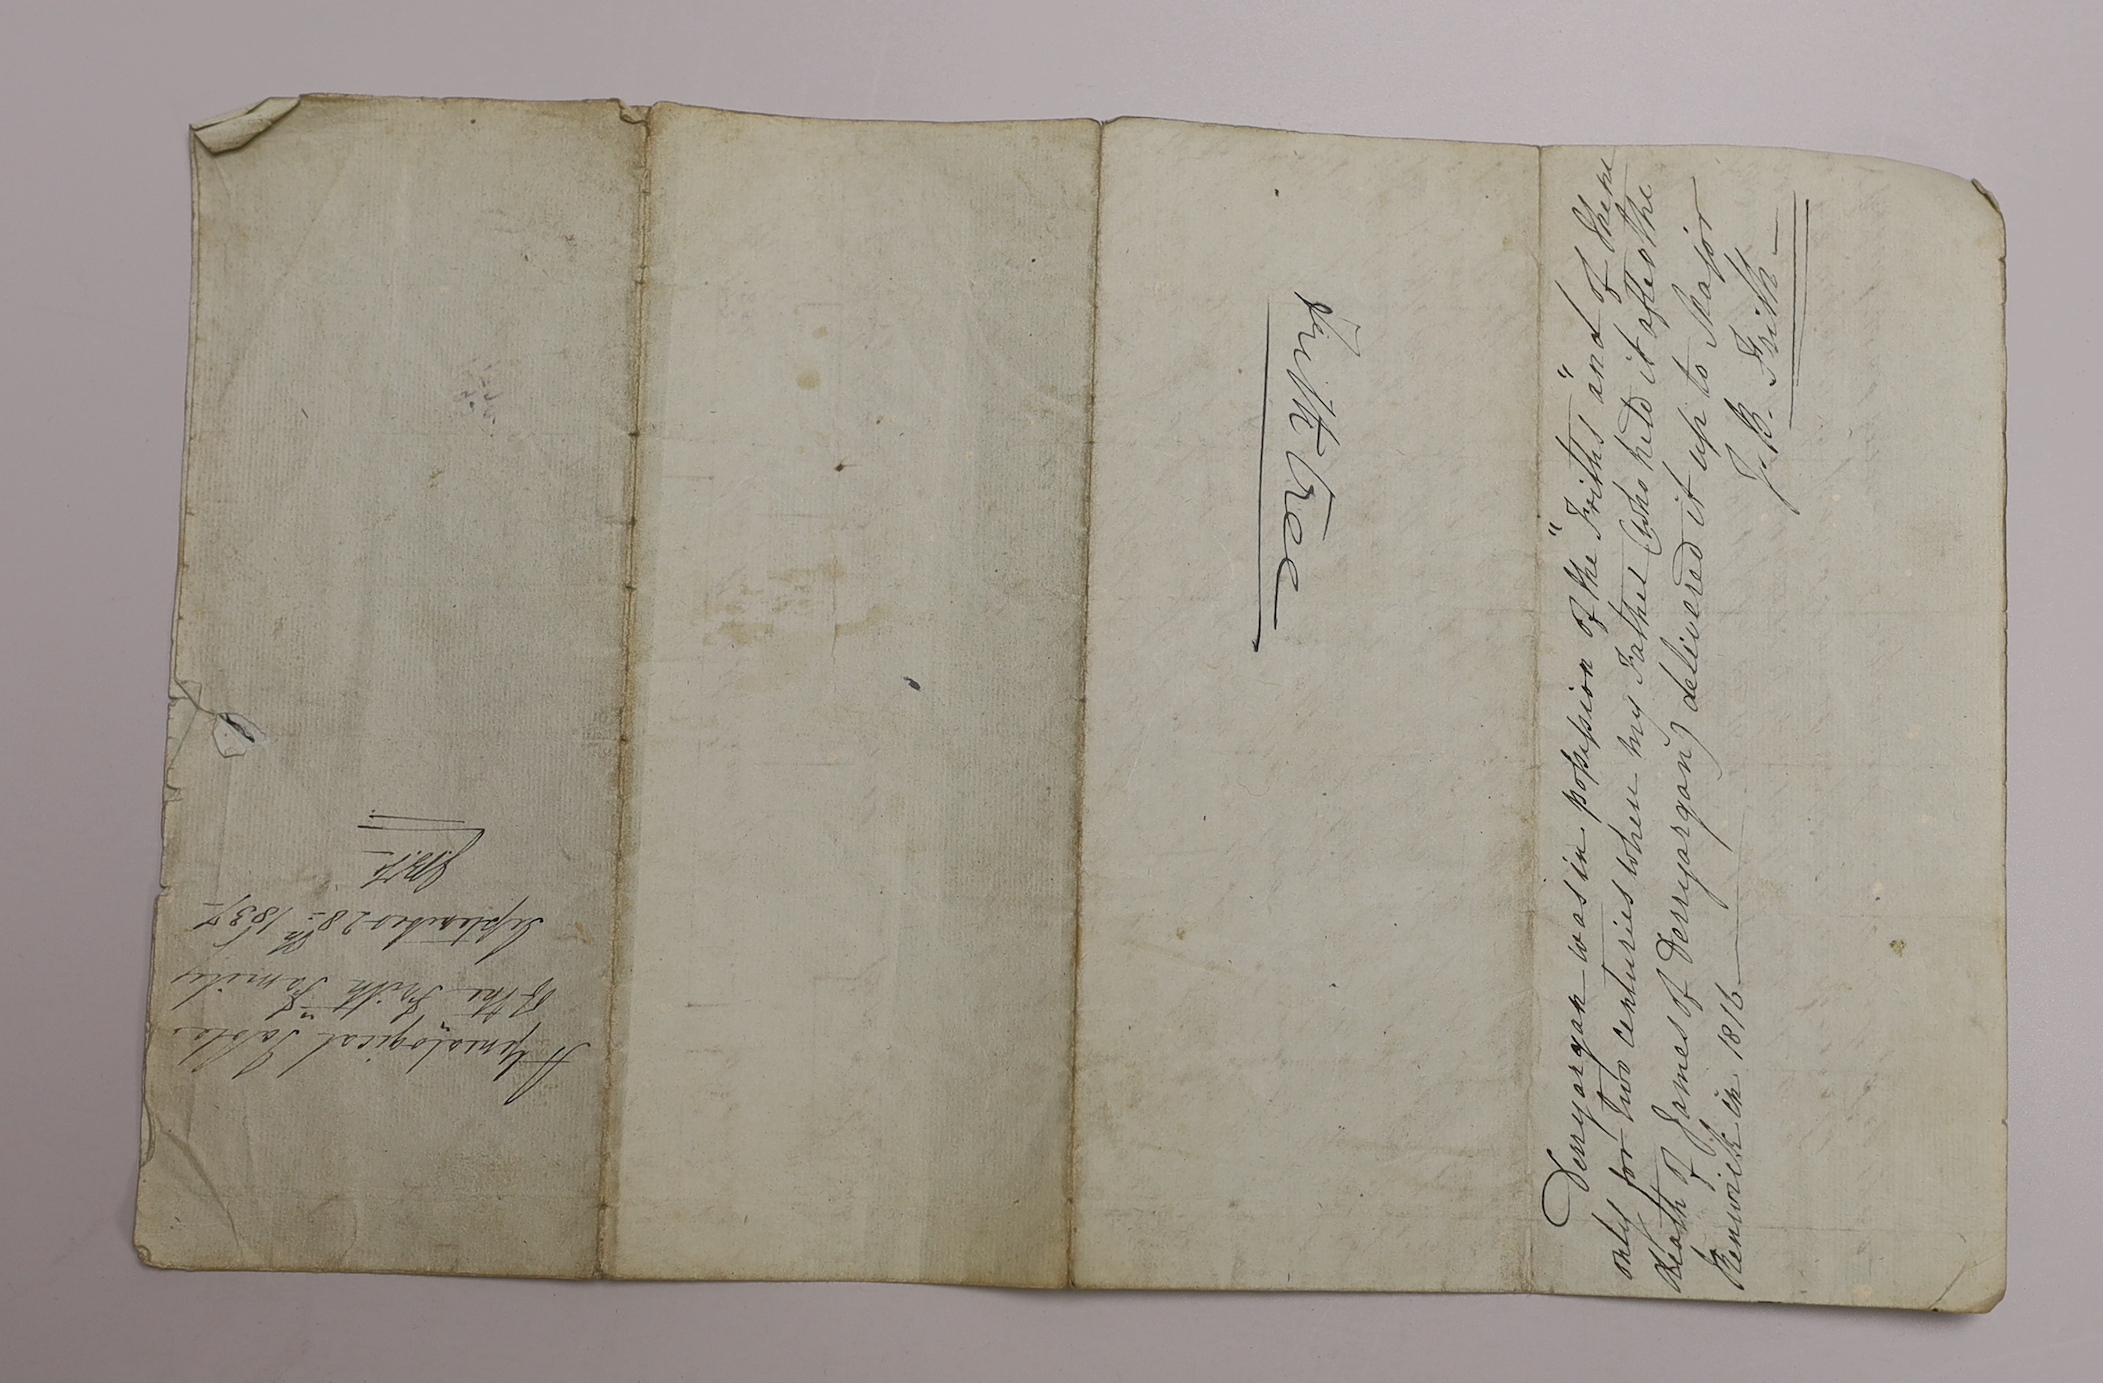 A Genealogical Table
of the "Frith" Family
September 28th 1837
J.B.F.
Frith Tree
Derryargan was in possession of the "Friths" and of them
only for two centuries when my Father (who held it after the
death of James of Derryargan) delivered it up to Major
in 1816
J. B. Frith